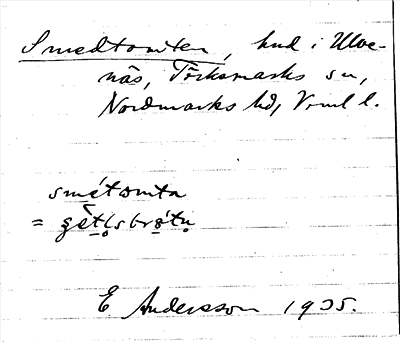 Smedtomten, hud i Ulve-
näs, Töcksmarks sn,
Nordmarks hd, Vrml l.
smétomta
= gètl̥sbrótn̥
E Andersson 1935.